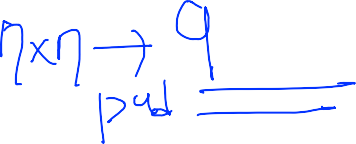 n×n → 9
pad